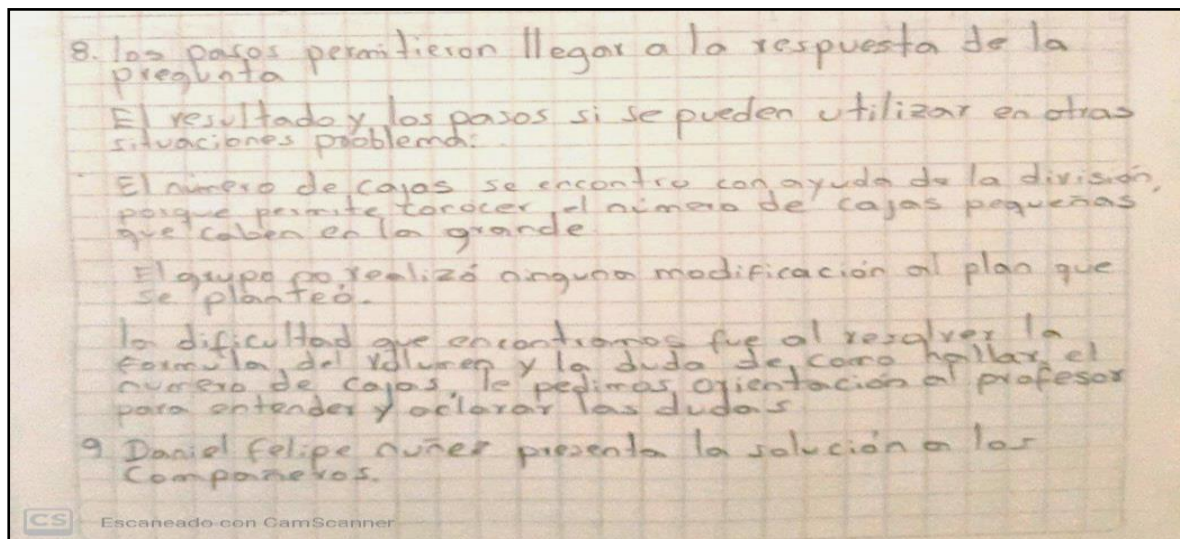 8. los pasos permitieron llegar a la respuesta de la
pregunta
El resultado y los pasos si se pueden utilizar en otras
situaciones problema:
El número de cajas se encontro con ayuda de la división,
porque permite conocer el número de cajas pequeñas
que caben en la grande
El grupo no realizó ninguna modificación al plan que
se planteó.
la dificultad que encontramos fue al resolver la
formula del volumen y la duda de como hallar el
numero de cajas, le pedimos orientación al profesor
para entender y aclarar las dudas
9 Daniel felipe nuñez presenta la solución a los
Compañeros.
CS Escaneado con CamScanner